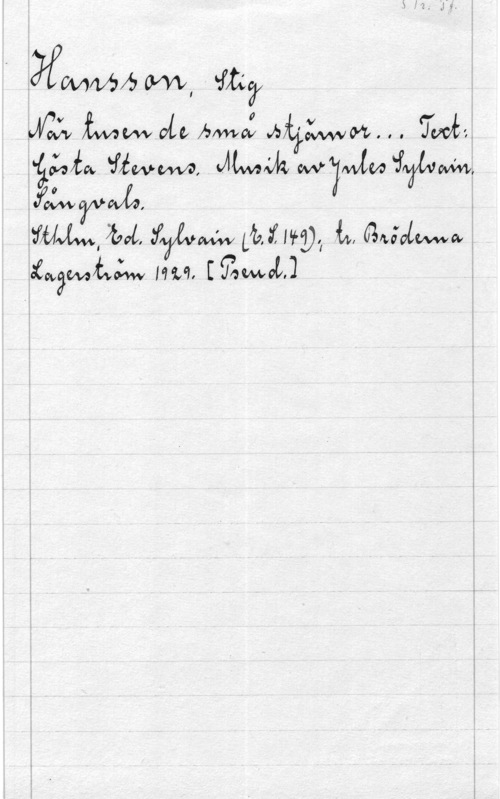 Hansson, Stig
När tusende små stjärnor... Text:
Gösta Stevens. Musik av Jules Sylvain.
Sångvals.
Sthlm, Ed. Sylvain (E.S. 149); tr. Bröderna
Lagerström 1929. [Pseud.]